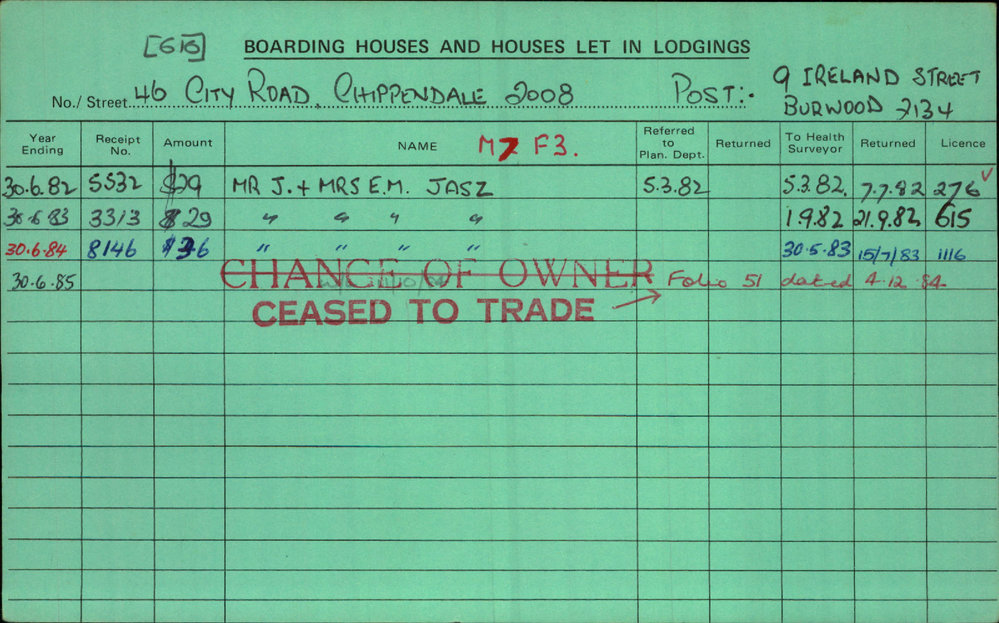 [615] BOARDING HOUSES AND HOUSES LET IN LODGINGS
No./ Street 46 CITY ROAD, CHIPPENDALE 2008 POST:- 9 IRELAND STREET
BURWOOD 2134
Year Ending Receipt No. Amount NAME M7 F3. Referred to Plan. Dept. Returned To Health Surveyor Returned Licence
30.6.82 5532 $29 MR J. + MRS E.M. JASZ 5.3.82 5.3.82. 7.7.82 276 ✓
30.6.83 3313 $29 " " " " 1.9.82 21.9.82 615
30.6.84 8146 $36 " " " " 30.5.83 15/7/83 1116
30.6.85 CHANGE OF OWNER Folio 51 dated 4.12.84.
CEASED TO TRADE